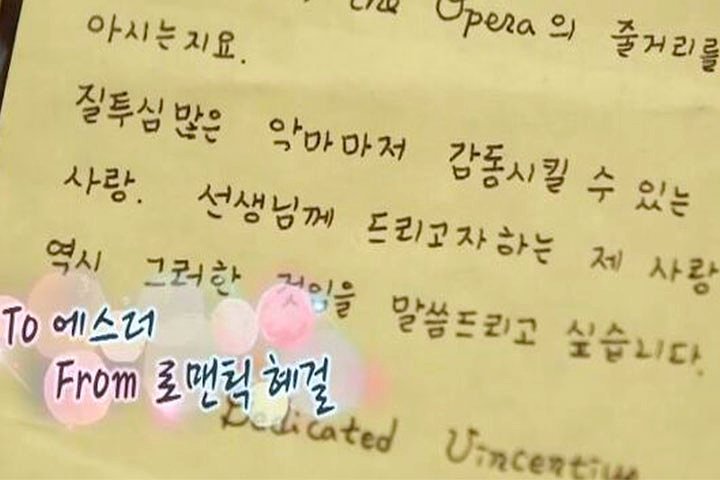 the Opera의 줄거리를
아시는지요.
질투심 많은 악마마저 감동시킬 수 있는
사랑. 선생님께 드리고자하는 제 사랑
역시 그러한 것임을 말씀드리고 싶습니다.
To 에스더
From 로맨틱 헤걸
Dedicated Vincentiu